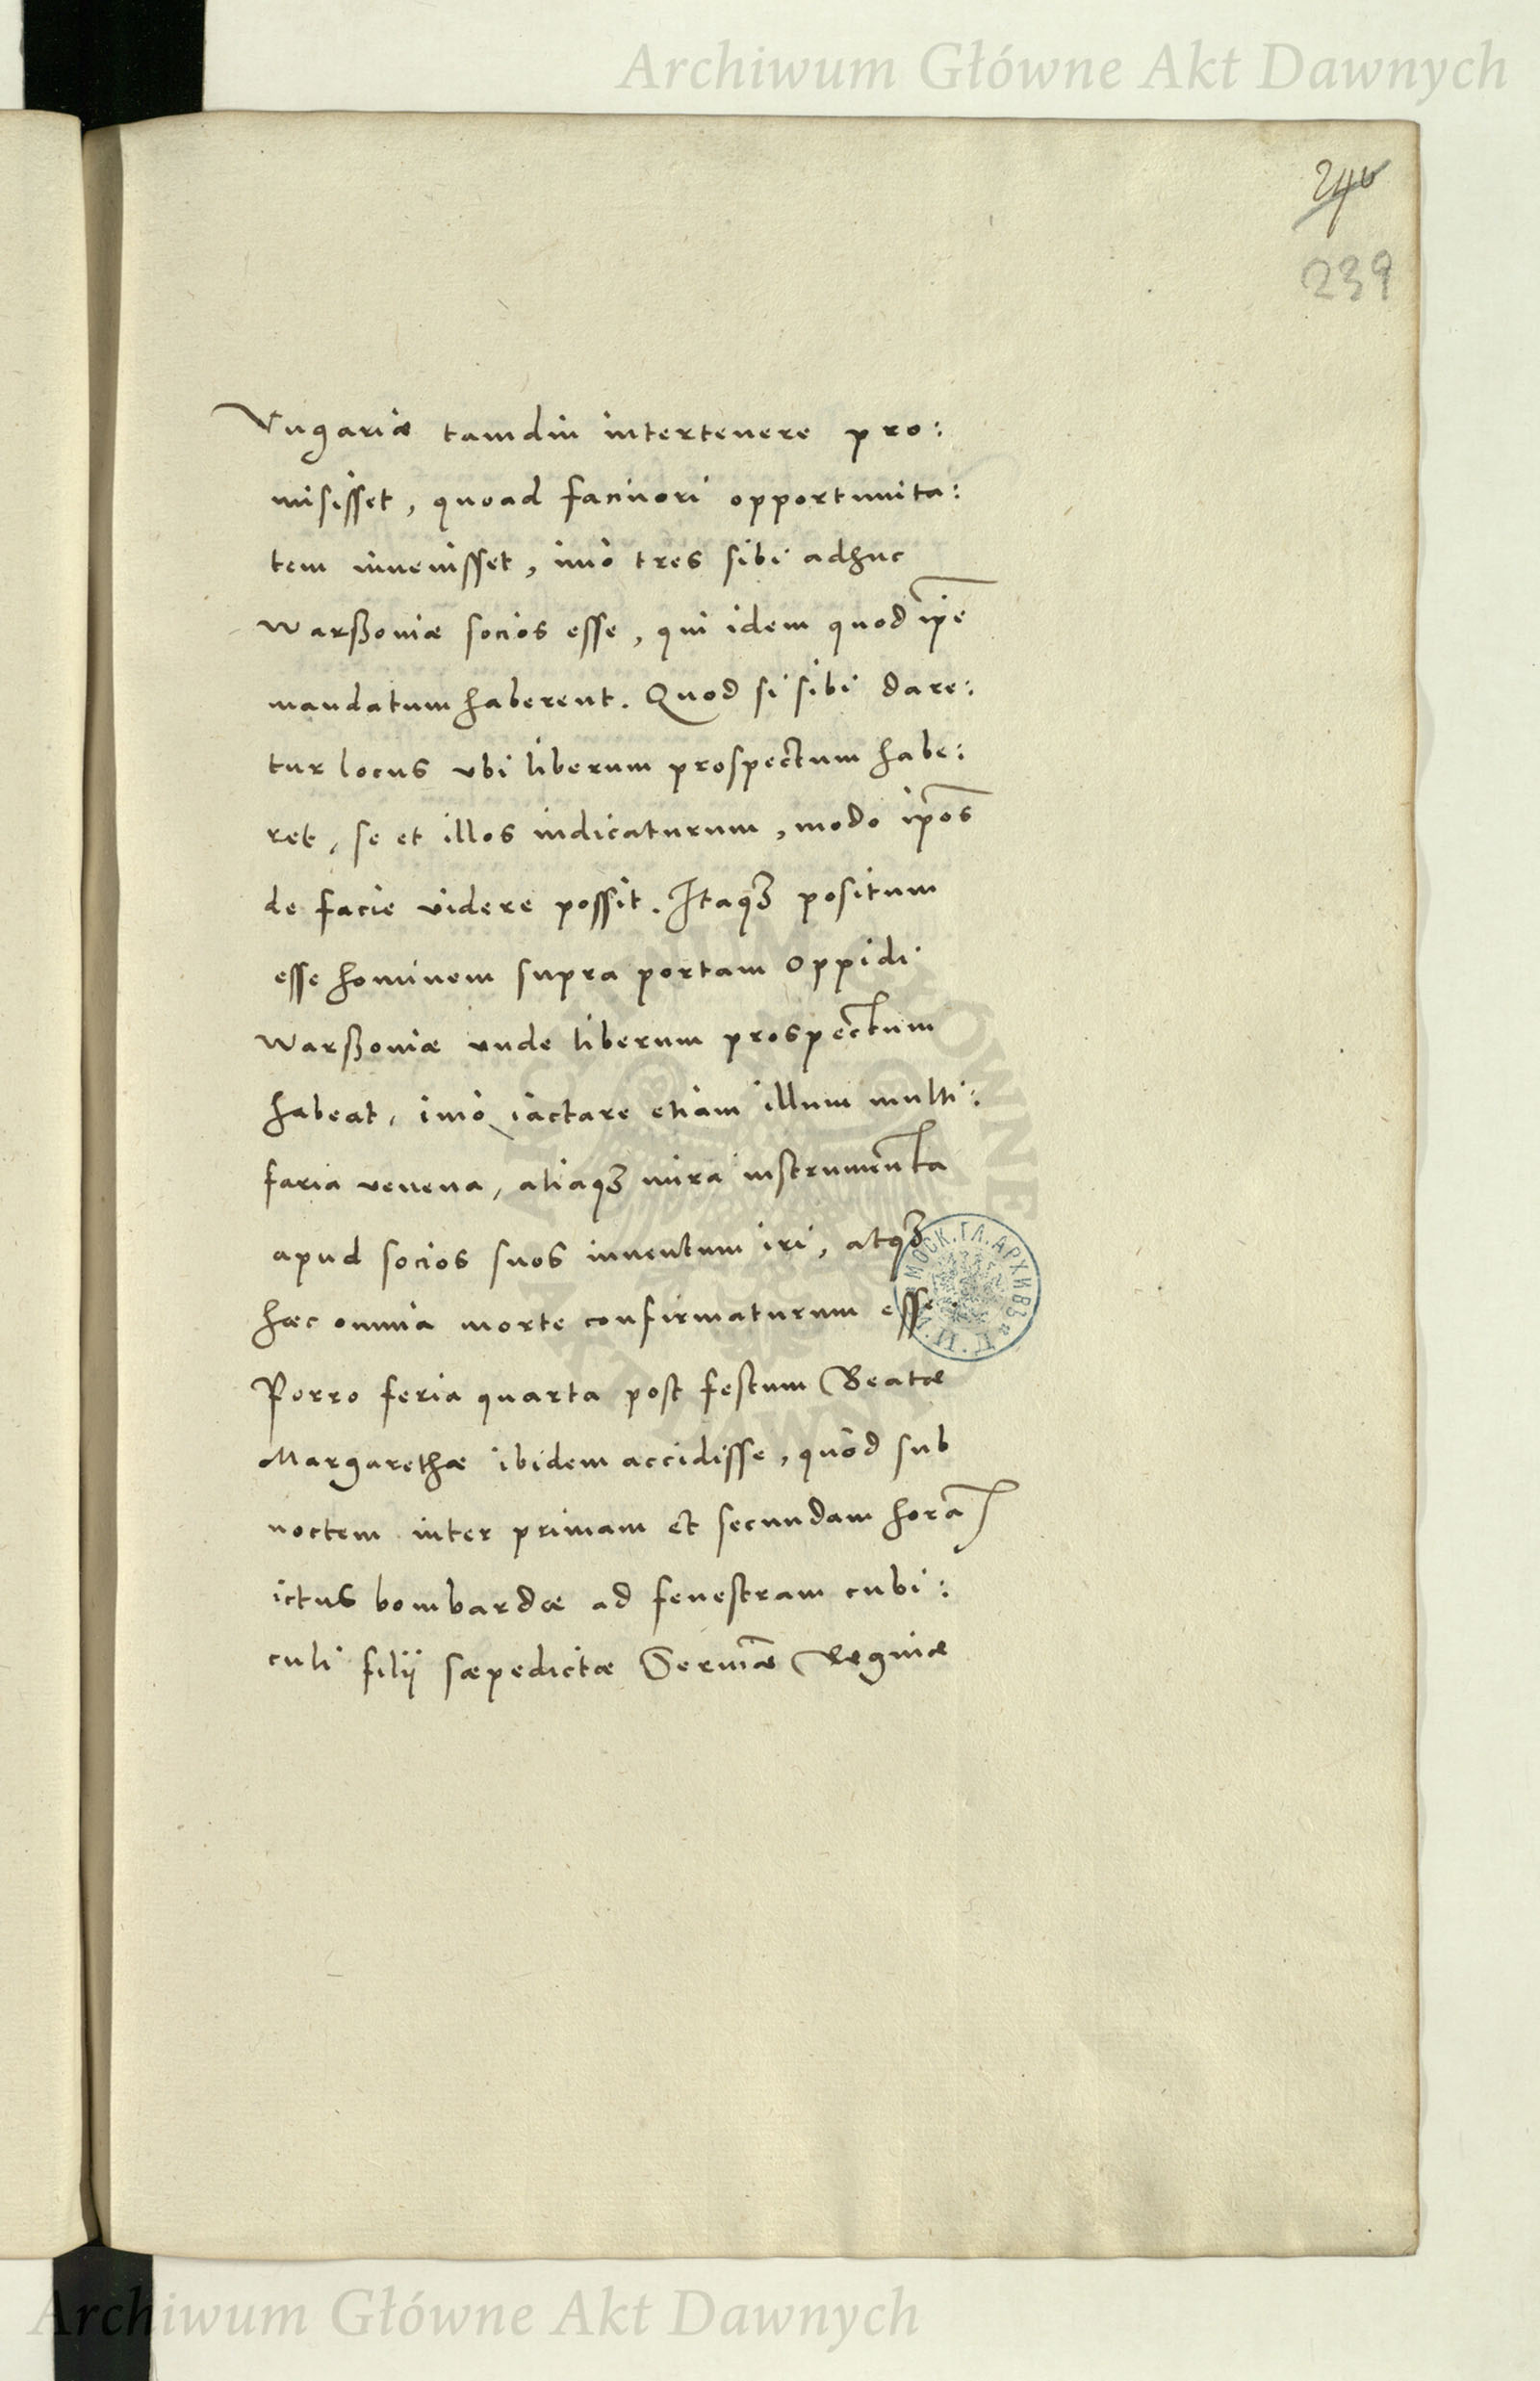 Archiwum Główne Akt Dawnych
246
239
Vngariæ tamdiu intertenere pro:
misisset, quoad facinori opportunita:
tem inuenisset, imò tres sibi adhuc
Warßouiæ socios esse, qui idem quod ip̃e
mandatum haberent. Quod si sibi dare:
tur locus vbi liberum prospectum habe:
ret, se et illos indicaturum, modo ip̃os
de facie videre possit. Itaqꝫ positum
esse hominem supra portam oppidi
Warßouiæ vnde liberum prospectum
habeat, imò iactare etiam illum multi:
faria venena, aliaqꝫ mira instrumenta
apud socios suos inuentum iri, atqꝫ
hæc omnia morte confirmaturum esse.
Porro feria quarta post festum Beatæ
Margarethæ ibidem accidisse, quòd sub
noctem inter primam et secundam horã
ictus bombardæ ad fenestram cubi:
culi filij sæpedictæ Serm̃æ Reginæ
МОСК.ГЛ.АРХИВЪ
Archiwum Główne Akt Dawnych